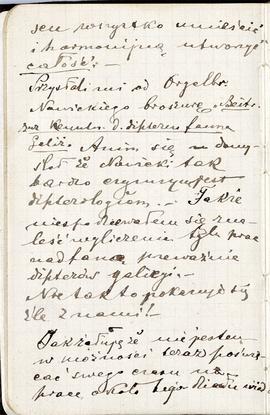 sen wszystko umieścić
i harmonijną utworzyć
całość.-
Przysłał mi od Orgelbr.
Nowickiego broszurę „Beitr.
zur Kenntn. d. dipteren fauna
Galiz. Anim się domy-
ślał że Nowicki tak
bardzo czynnym jest
dipterologiem. - Także
niespodziewałem się zna-
leść wyliczenia tylu prac
nad fauną przeważnie
dipterów galicyj. -
No tak to pokazuje się
źle z nami!
Jakże żałuję że nie jestem
w możności teraz poświę-
cać swego czasu na
prace około tego działu wied